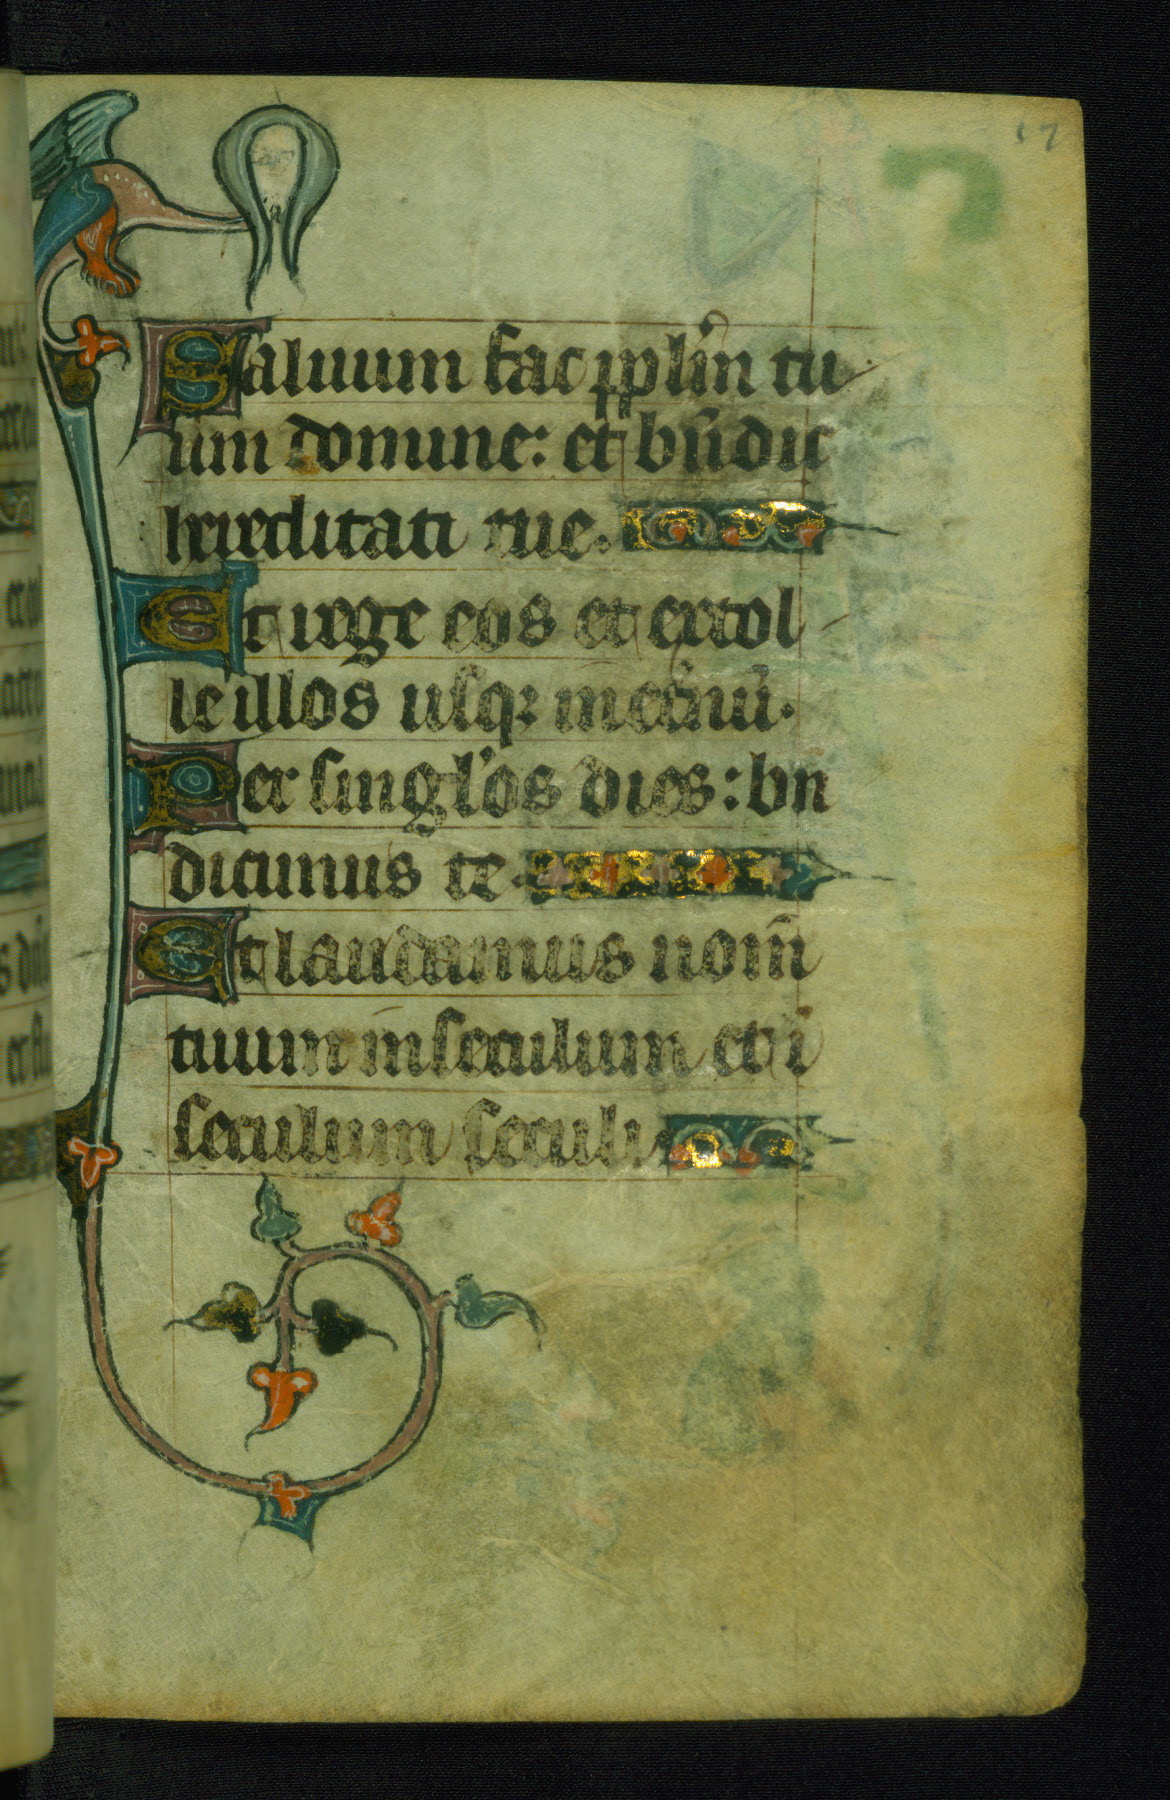 17
Saluum fac pplm̄ tu
um domine: et bn̄dic
hereditati tue.
Et rege eos et extol
le illos usq; in et̄nū.
Per singl'os dies: bn
dicimus te
Et laudamus nom̄
tuum in seculum et i
seculum seculi